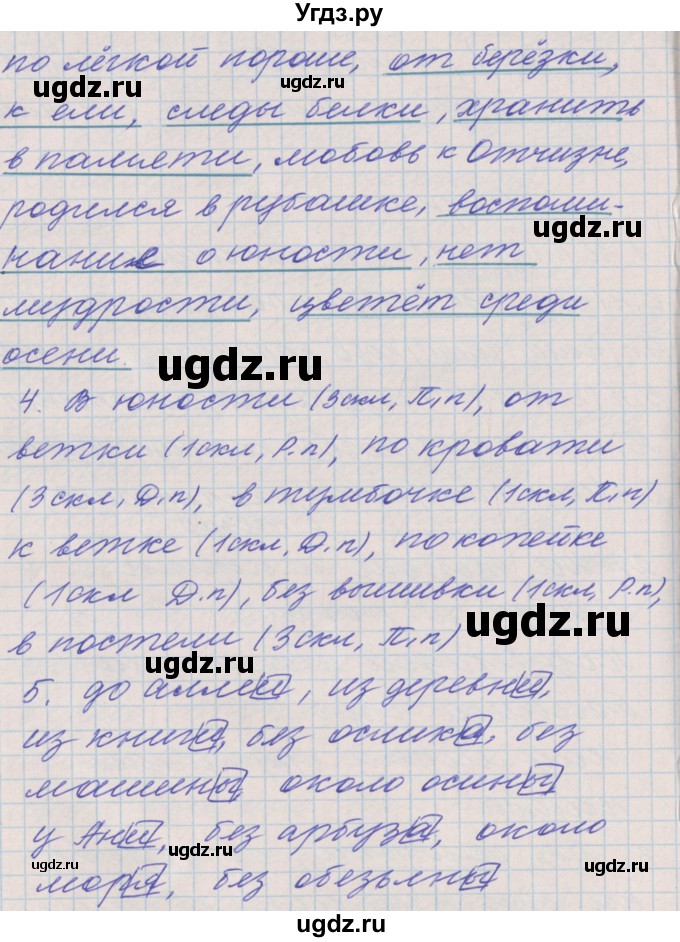 Угдз.ру
по лёгкой пороше, от берёзки,
ugdz.ru ugdz.ru
к ели, следы белки, хранить
в памяти, любовь к Отчизне,
родился в рубашке, воспоми-
ugdz.ru
нание о юности, нет
мудрости, цветёт среди
осени.
ugdz.ru
4. В юности (3скл, П,п), от
ветки (1скл, Р.п), по кровати
(3скл, Д,п), в тумбочке (1скл, П,п)
к ветке (1скл, Д.п), по копейке
(1скл Д.п), без вышивки (1скл, Р.п),
ugdz.ru
в постели (3скл, П,п)
ugdz.ru
5. до аллеи, из деревни,
из книги, без ослика, без
машины, около осины
у Ани, без арбуза, около
ugdz.ru ugdz.ru
моря, без обезьяны
ugdz.ru